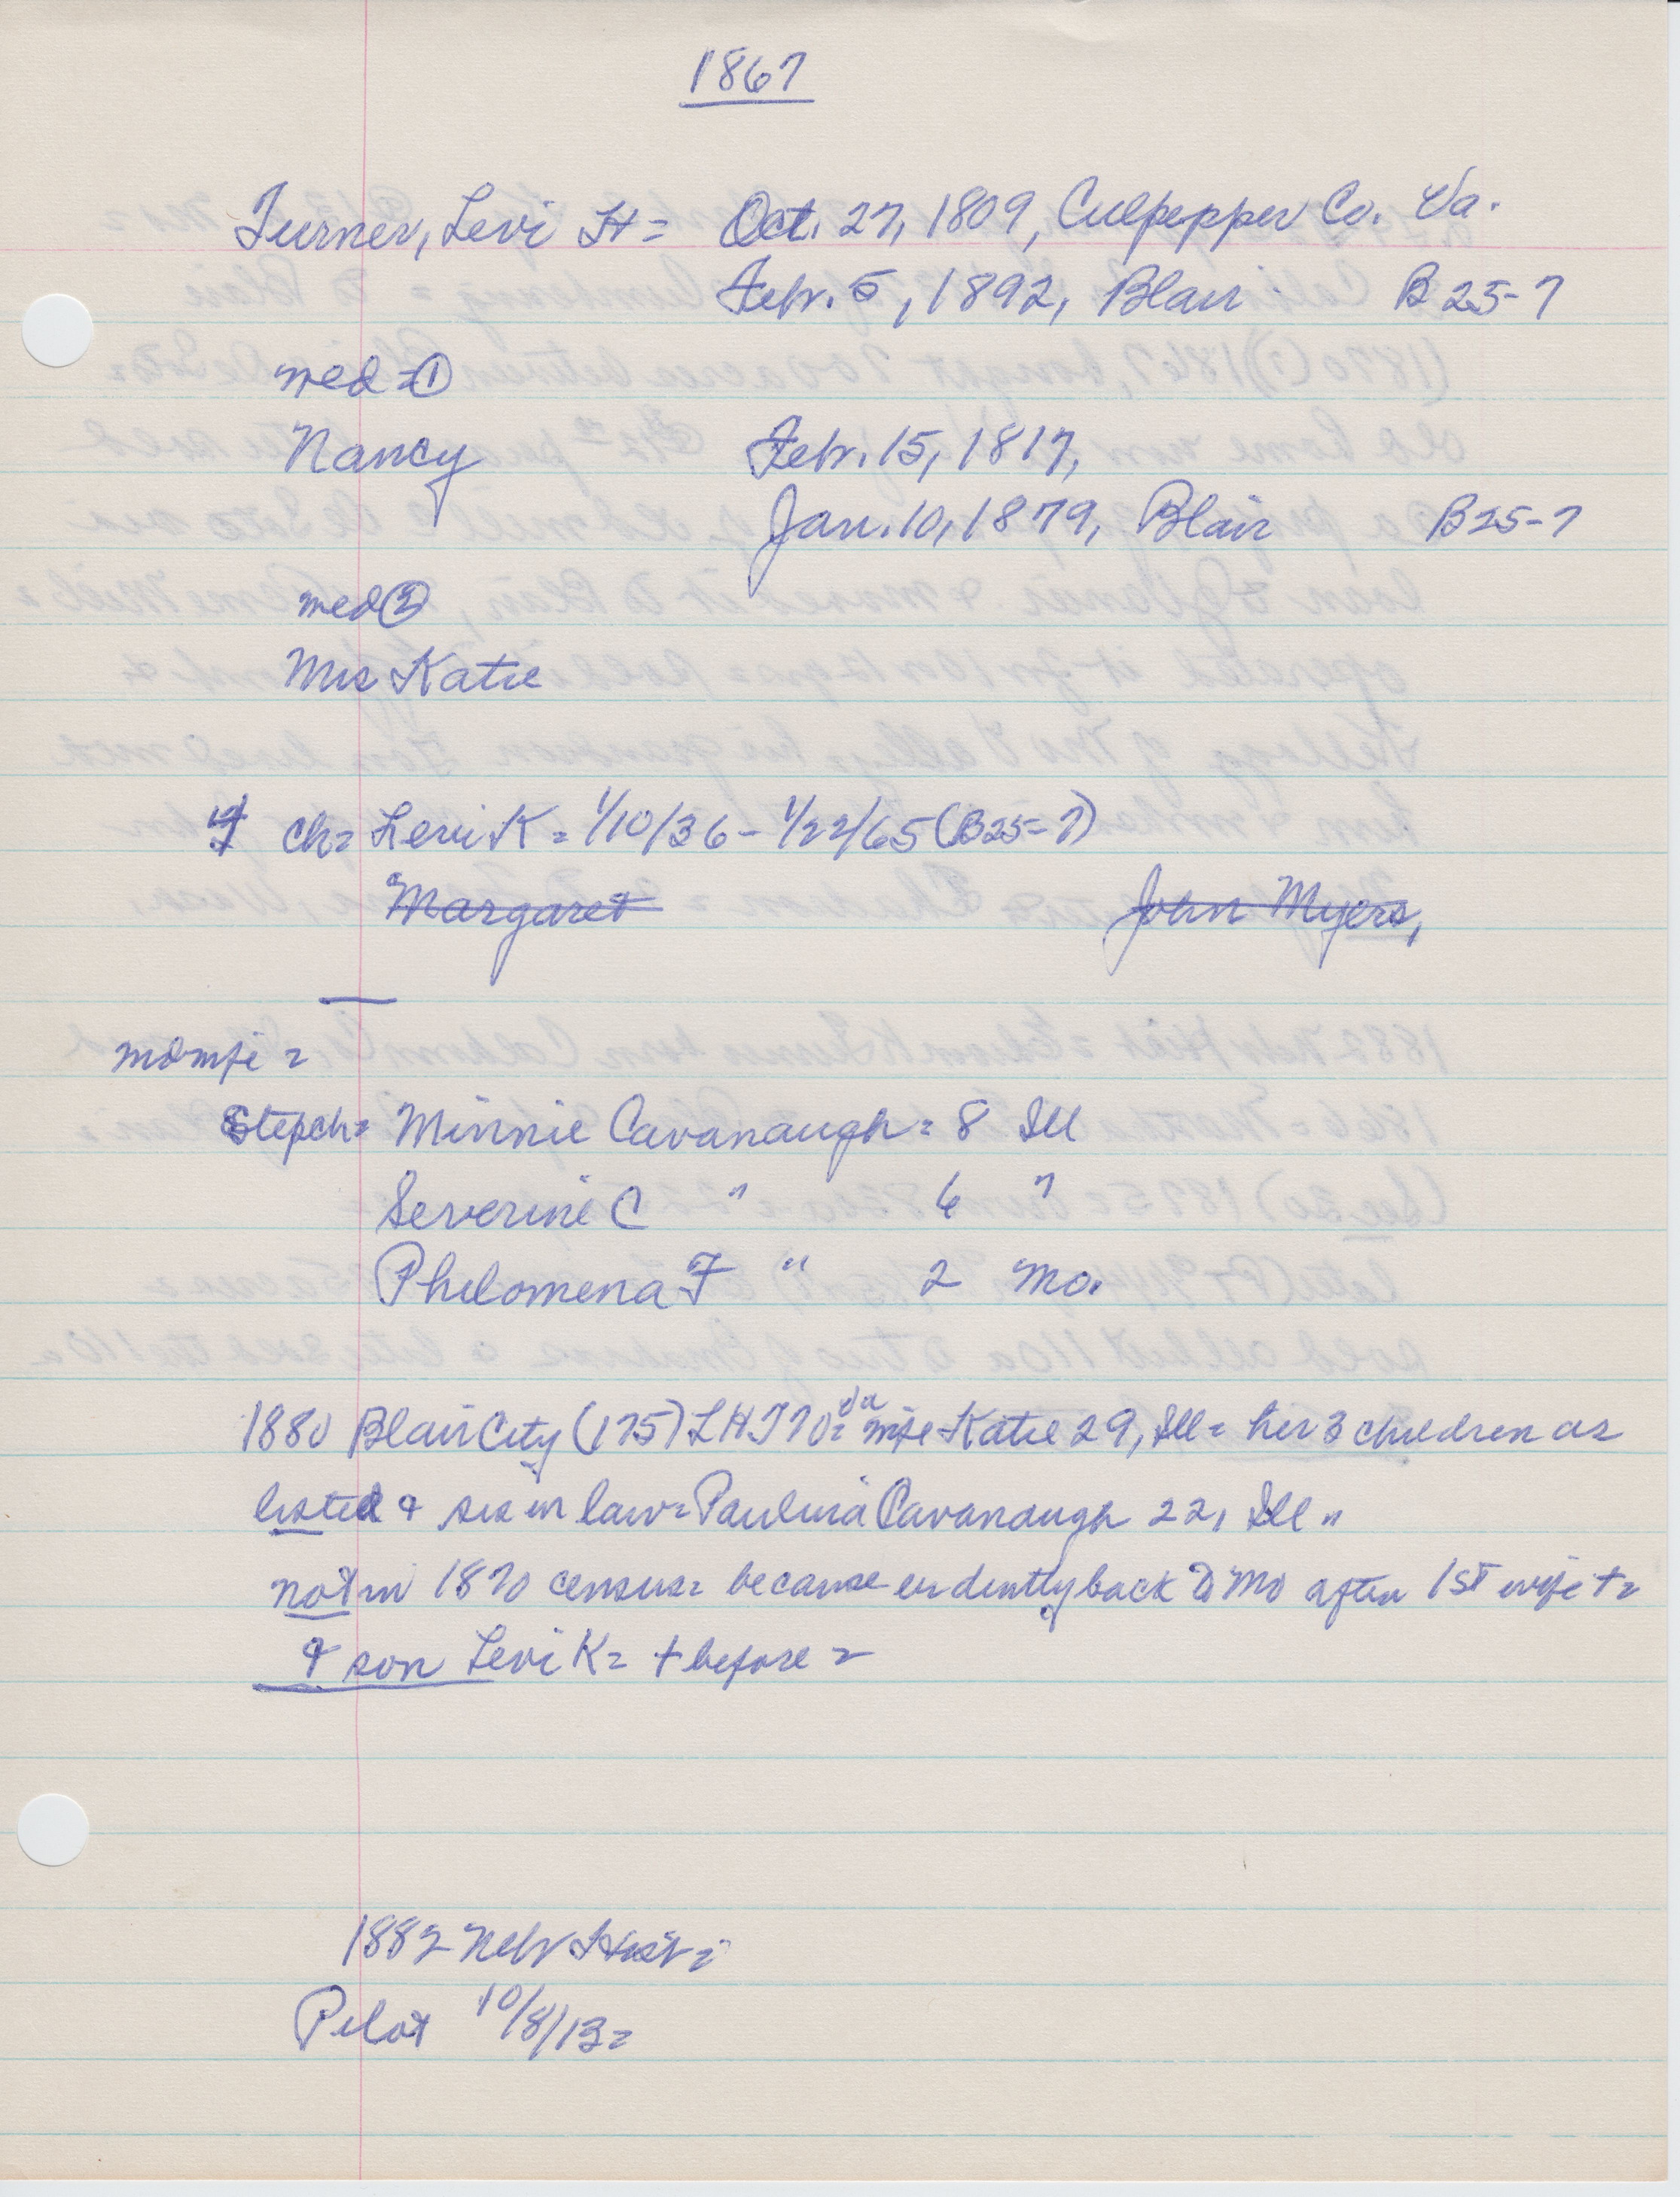 1867
Turner, Levi H = Oct. 27, 1809, Culpepper Co. Va.
Febr. 5, 1892, Blair B 25-7
med ①
Nancy Febr. 15, 1817,
Jan. 10, 1879, Blair B25-7
med ②
Mrs Katie
ch = Levi K = 1/10/36 - 1/22/65 (B25-7)
Margaret John Myers,
2d wife =
Stepch = Minnie Cavanaugh = 8 Ill
Severine C " 6 "
Philomena F " 2 Mo.
1880 Blair City (175) LHT 70 = Va wife Katie 29, Ill = her 3 children as
listed & sis in law = Paulina Cavanaugh 22, Ill "
not in 1870 census = because evidently back to Mo after 1st wife + =
& son Levi K = + before =
1882 Nebr Hist =
Pilot 10/8/13 =